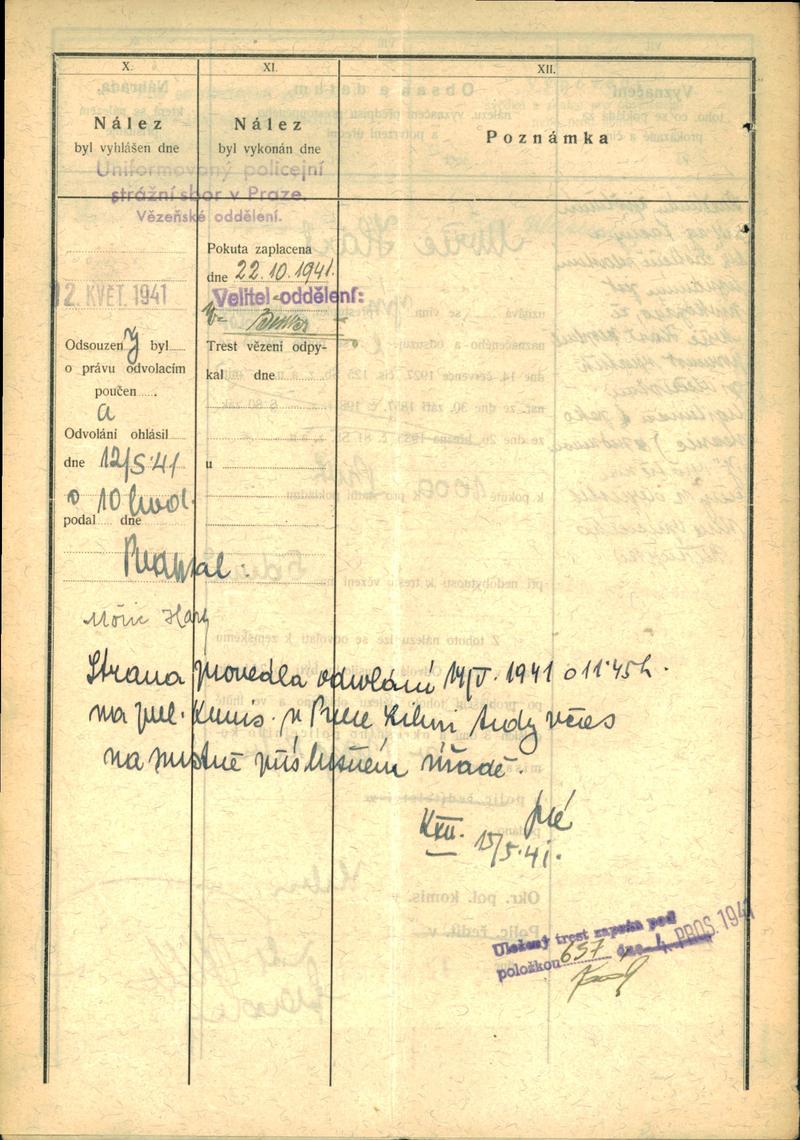 X.
Nález
byl vyhlášen dne
Uniformovaný policejní
strážní sbor v Praze.
Vězeňské oddělení.
12. KVĚT. 1941
Odsouzen ý byl
o právu odvolacím
poučen
a
Odvolání ohlásil
dne 12/5 41
o 10 hod.
podal dne
Podepsal:
Móric Harz
XI.
Nález
byl vykonán dne
Pokuta zaplacena
dne 22.10.1941.
Velitel oddělení:
Trest vězení odpy-
kal dne
u
XII.
Poznámka
Strana provedla odvolání 14/V. 1941 o 11·45 h.
na pol. Komis. v tedy včas
na místně příslušném úřadě.
XII.
15/5·41.
Uložený trest zapsán pod
položkou 657 dne 4. PROS. 1941